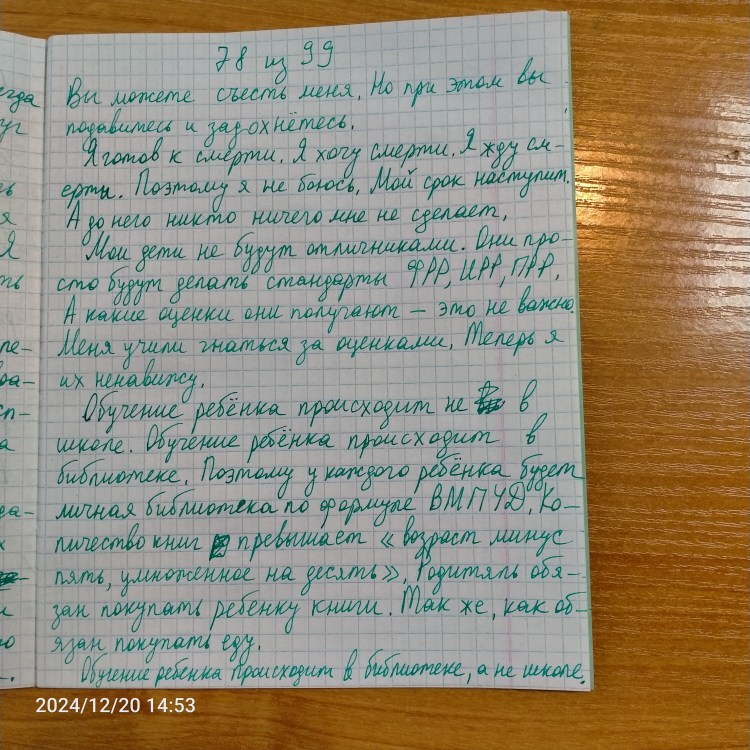 78 из 99
Вы можете съесть меня. Но при этом вы
подавитесь и задохнётесь.
Я готов к смерти. Я хочу смерти. Я жду см-
ерти. Поэтому я не боюсь. Мой срок наступит.
А до него никто ничего мне не сделает.
Мои дети не будут отличниками. Они про-
сто будут делать стандарты ФРР, ИРР, ПРР.
А какие оценки они получают — это не важно.
Меня учили гнаться за оценками. Теперь я
их ненавижу.
Обучение ребёнка происходит не в
школе. Обучение ребёнка происходит в
библиотеке. Поэтому у каждого ребёнка будет
личная библиотека по формуле ВМПУД. Ко-
личество книг превышает «возраст минус
пять, умноженное на десять». Родитяль обя-
зан покупать ребенку книги. Так же, как об-
язан покупать еду.
Обучение ребенка происходит в библиотеке, а не школе.
2024/12/20 14:53